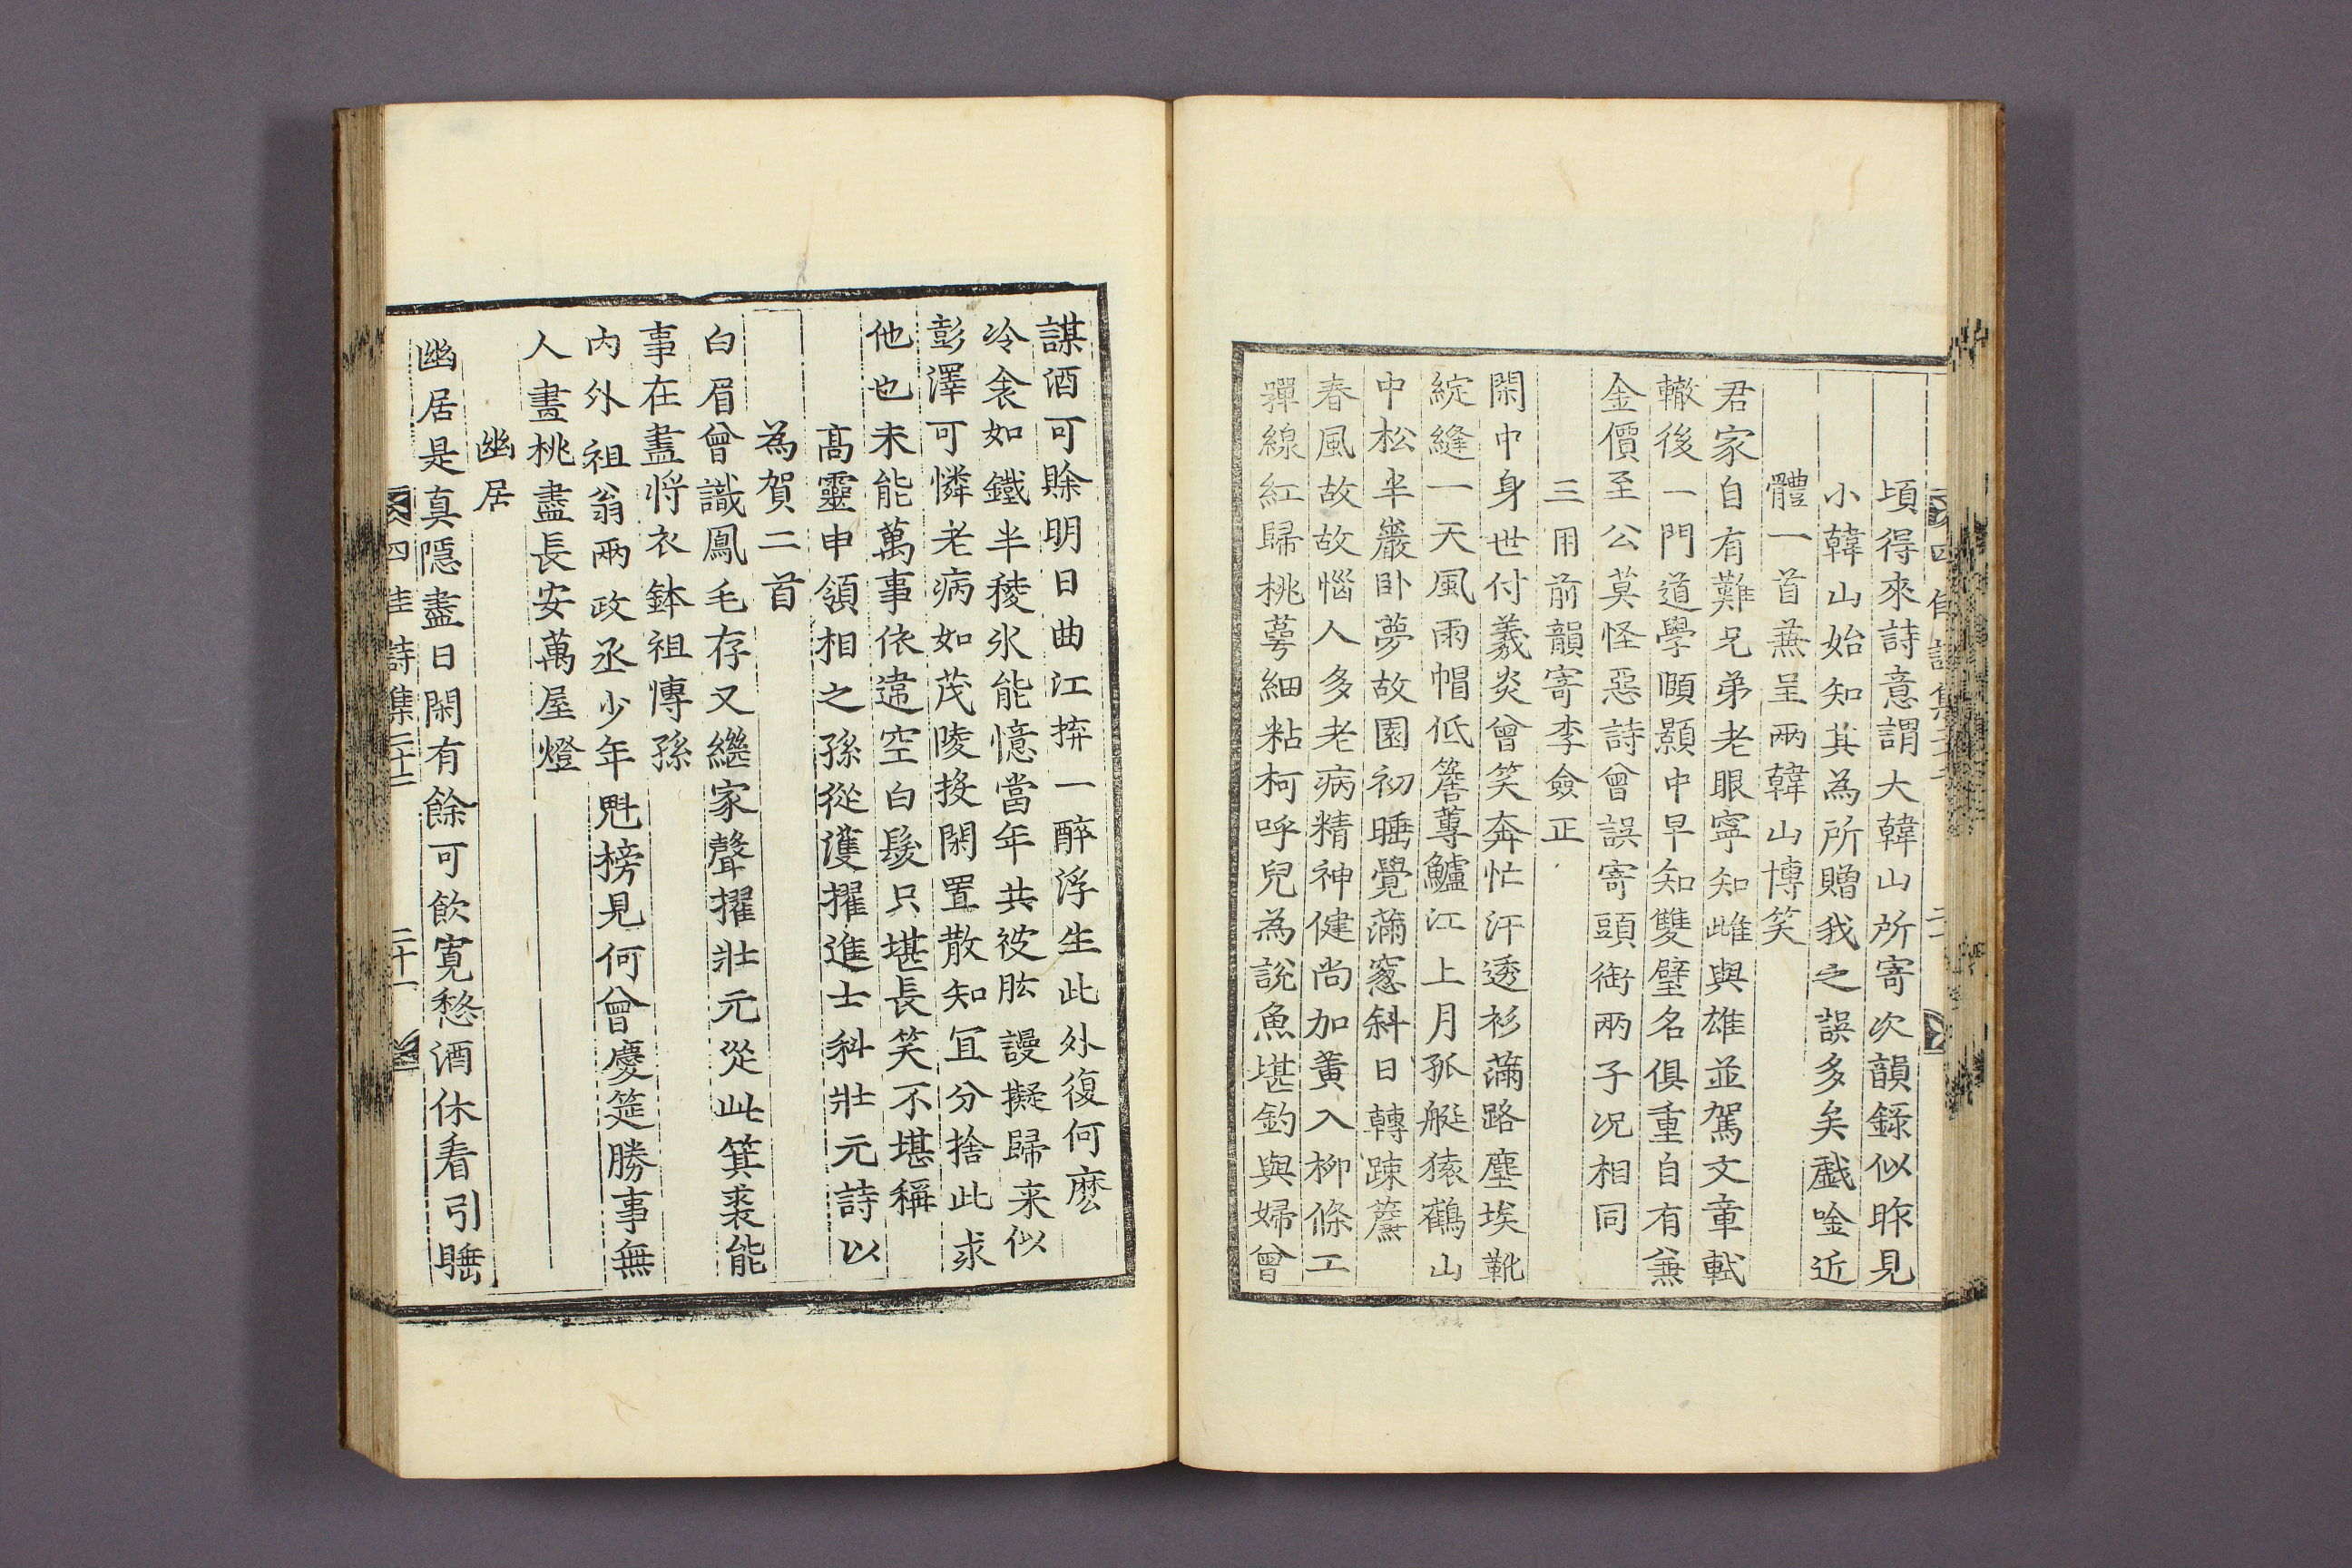 頃得來詩意謂大韓山所寄次韻錄似昨見
小韓山始知其為所贈我之誤多矣戲唫近
體一首蕪呈兩韓山博笑
君家自有難兄弟老眼寧知雌與雄並駕文章軾
轍後一門道學頤顥中早知雙璧名俱重自有兼
金價至公莫怪惡詩曾誤寄頭銜兩子況相同
三用前韻寄李僉正
閑中身世付羲炎曾笑奔忙汗透衫滿路塵埃靴
綻縫一天風雨帽低簷蓴鱸江上月孤艇猿鶴山
中松半巖卧夢故園初睡覺滿窓斜日轉踈簾
春風故故惱人多老病精神健尚加黃入柳條工
嚲線紅歸桃萼細粘柯呼兒為說魚堪釣與婦曾
謀酒可賖明日曲江拚一醉浮生此外復何麽
冷衾如鐵半稜氷能憶當年共被肱謾擬歸来似
彭澤可憐老病如茂陵投閑置散知冝分捨此求
他也未能萬事依違空白髮只堪長笑不堪稱
髙靈申領相之孫從濩擢進士科壯元詩以
為賀二首
白眉曾識鳳毛存又繼家聲擢壯元從此箕裘能
事在盡將衣鉢祖傳孫
內外祖翁兩政丞少年魁榜見何曾慶筵勝事無
人畫桃盡長安萬屋燈
幽居
幽居是真隱盡日閑有餘可飲寛愁酒休看引睡
四佳詩集二十二 二十一